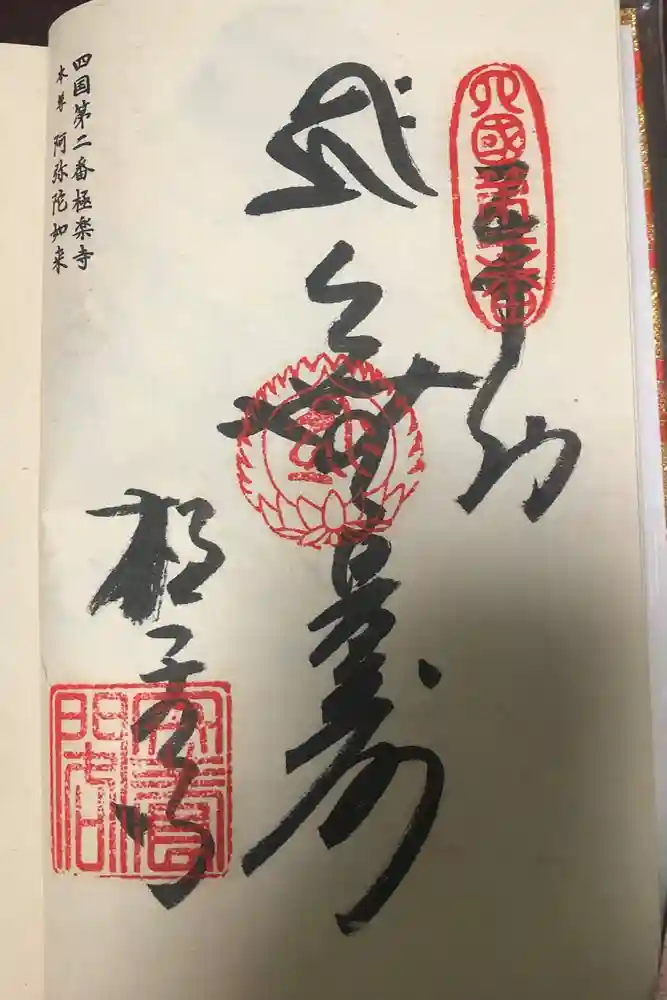 四國第二番
奉納
無量寿
極楽寺
四国第二番極楽寺
本尊 阿弥陀如来